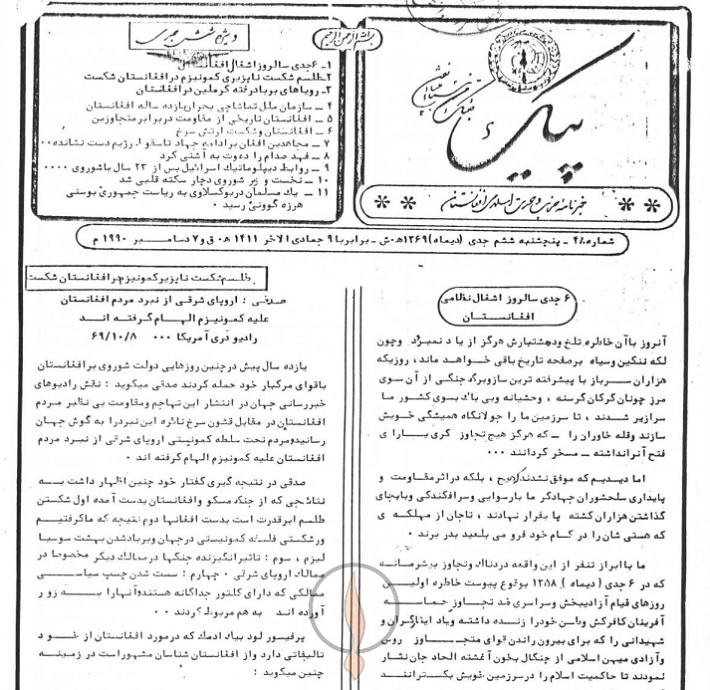 بسم الله الرحمن الرحیم
پیک
خبرنامه حزب وحدت اسلامی افغانستان
ویژه شش جدی
۱- ۶ جدی سالروز اشغال افغانستان
۲- طلسم شکست ناپذیری کمونیزم در افغانستان شکست
۳- رویاهای بربادرفته کرملین در افغانستان
۴ – سازمان ملل تماشاچی بحران یازده ساله افغانستان
۵ – افغانستان تاریخی از مقاومت در برابر متجاوزین
۶ – افغانستان وشکست ارتش سرخ
۷ – مجاهدین افغان برادامه جهاد تا سقوط رژیم دست نشانده۰۰
۸ – فهد صدام را دعوت به آشتی کرد
۹ – روابط دیپلوماتیک اسرائیل پس از ۲۳ سال باشوروی ۰۰۰۰
۱۰ – نخست و زیر شوروی دچار سکته قلبی شد
۱۱ – یك مسلمان در یوگسلاوی به ریاست جمهوری بوسنی
هرزه گووین رسید ۰
شماره ۴۸ – پنجشنبه ششم جدی (دیماه) ۱۳۶۹ه‍ ش – برابر با ۹ جمادی الاخر ۱۴۱۱ ه‍ ق و ۷ دسامبر ۱۹۹۰ م
۶ جدی سالروز اشغال نظامی
افغانستان
آنروز باآن خاطره تلخ ودهشتبارش هرگز از یا د نمیرود وچون
لکه ننگین وسیاه برصفحه تاریخ باقی خواهد ماند، روزیکه
هزاران سرباز با پیشرفته ترین سازوبرگ جنگی از آن سوی
مرز چونان گرگان گرسنه ، وحشیانه وبی باك بسوی کشور ما
سرازیر شدند ، تا سرزمین ما را جولانگاه همیشگی خویش
سازند وقله خاوران را – که هرگز هیچ تجاوز گری یارا ی
فتح آنرانداشته – مسخر گردانند ۰۰۰
اما دیدیم که موفق نشدند ، بلکه دراثرمقاومت و
پایداری سلحشوران جهادگر ما بارسوایی وسرافکندگی وبابجای
گذاشتن هزاران کشته پا بفرار نهادند ، تاجان از مهلکه ی
که هستی شان را در کام خود فرو می بلعید بدر برند ۰
ما باابراز تنفر از این واقعه دردناك وتجاوز بیشرمانه
که در ۶ جدی ( دیماه ) ۱۳۵۸ بوقوع پیوست خاطره اولین
روزهای قیام آزادیبخش وسراسری ضد تجاوز حماسه
آفرینان کافرکش وطن خودرا زنده داشته ویاد ایثارگران و
شهیدانی را که برای بیرون راندن قوای متجاوز روس
وآزادی میهن اسلامی از چنگال بخون آغشته الحاد جان نثار
نمودند تا حاکمیت اسلام را درسرزمین خویش بگسترانند
طلسم شکست ناپذیر کمونیزم در افغانستان شکست
صدقی : اروپای شرقی از نبرد مردم افغانستان
علیه کمونیزم الهام گرفته اند
رادیو دری آمریکا ۰۰۰ ۶۹/۱۰/۸
یازده سال پیش در چنین روزهایی دولت شوروی بر افغانستان
باقوای مرگبار خود حمله کردند صدقی میگوید : نقش رادیوهای
خبررسانی جهان در انتشار این تهاجم ومقاومت بی نظیر مردم
افغانستان در مقابل قشون سرخ نائره این نبردرا به گوش جهان
رسانیدومردم تحت سلطه کمونیستی اروپای شرقی از نبرد مردم
افغانستان علیه کمونیزم الهام گرفته اند ۰
صدقی در نتیجه گیری گفتار خود چنین اظهار داشت به
نتائجی که از جنگ مسکو وافغانستان بدست آمده اول شکستن
طلسم ابرقدرت است بدست افغانها دوم نتیجه که ماگرفتیم
ورشکستی فلسفه کمونیستی درجهان وبربادشدن بهشت سوسیا
لیزم ، سوم : تاثیر انگیزنده جنگها درممالك دیگر مخصوصا در
ممالك اروپای شرقی ۰ چهارم : سست شدن چسپ سیاسی
ممالکی که دارای کلتور جداگانه هستندوآنهارا به زور
آورده اند به هم مربوط کردند ۰۰
پرفیسور لود بیك ادمك که درمورد افغانستان از خود
تالیفاتی دارد واز افغانستان شناسان مشهوراست در زمینه
چنین میگوید :